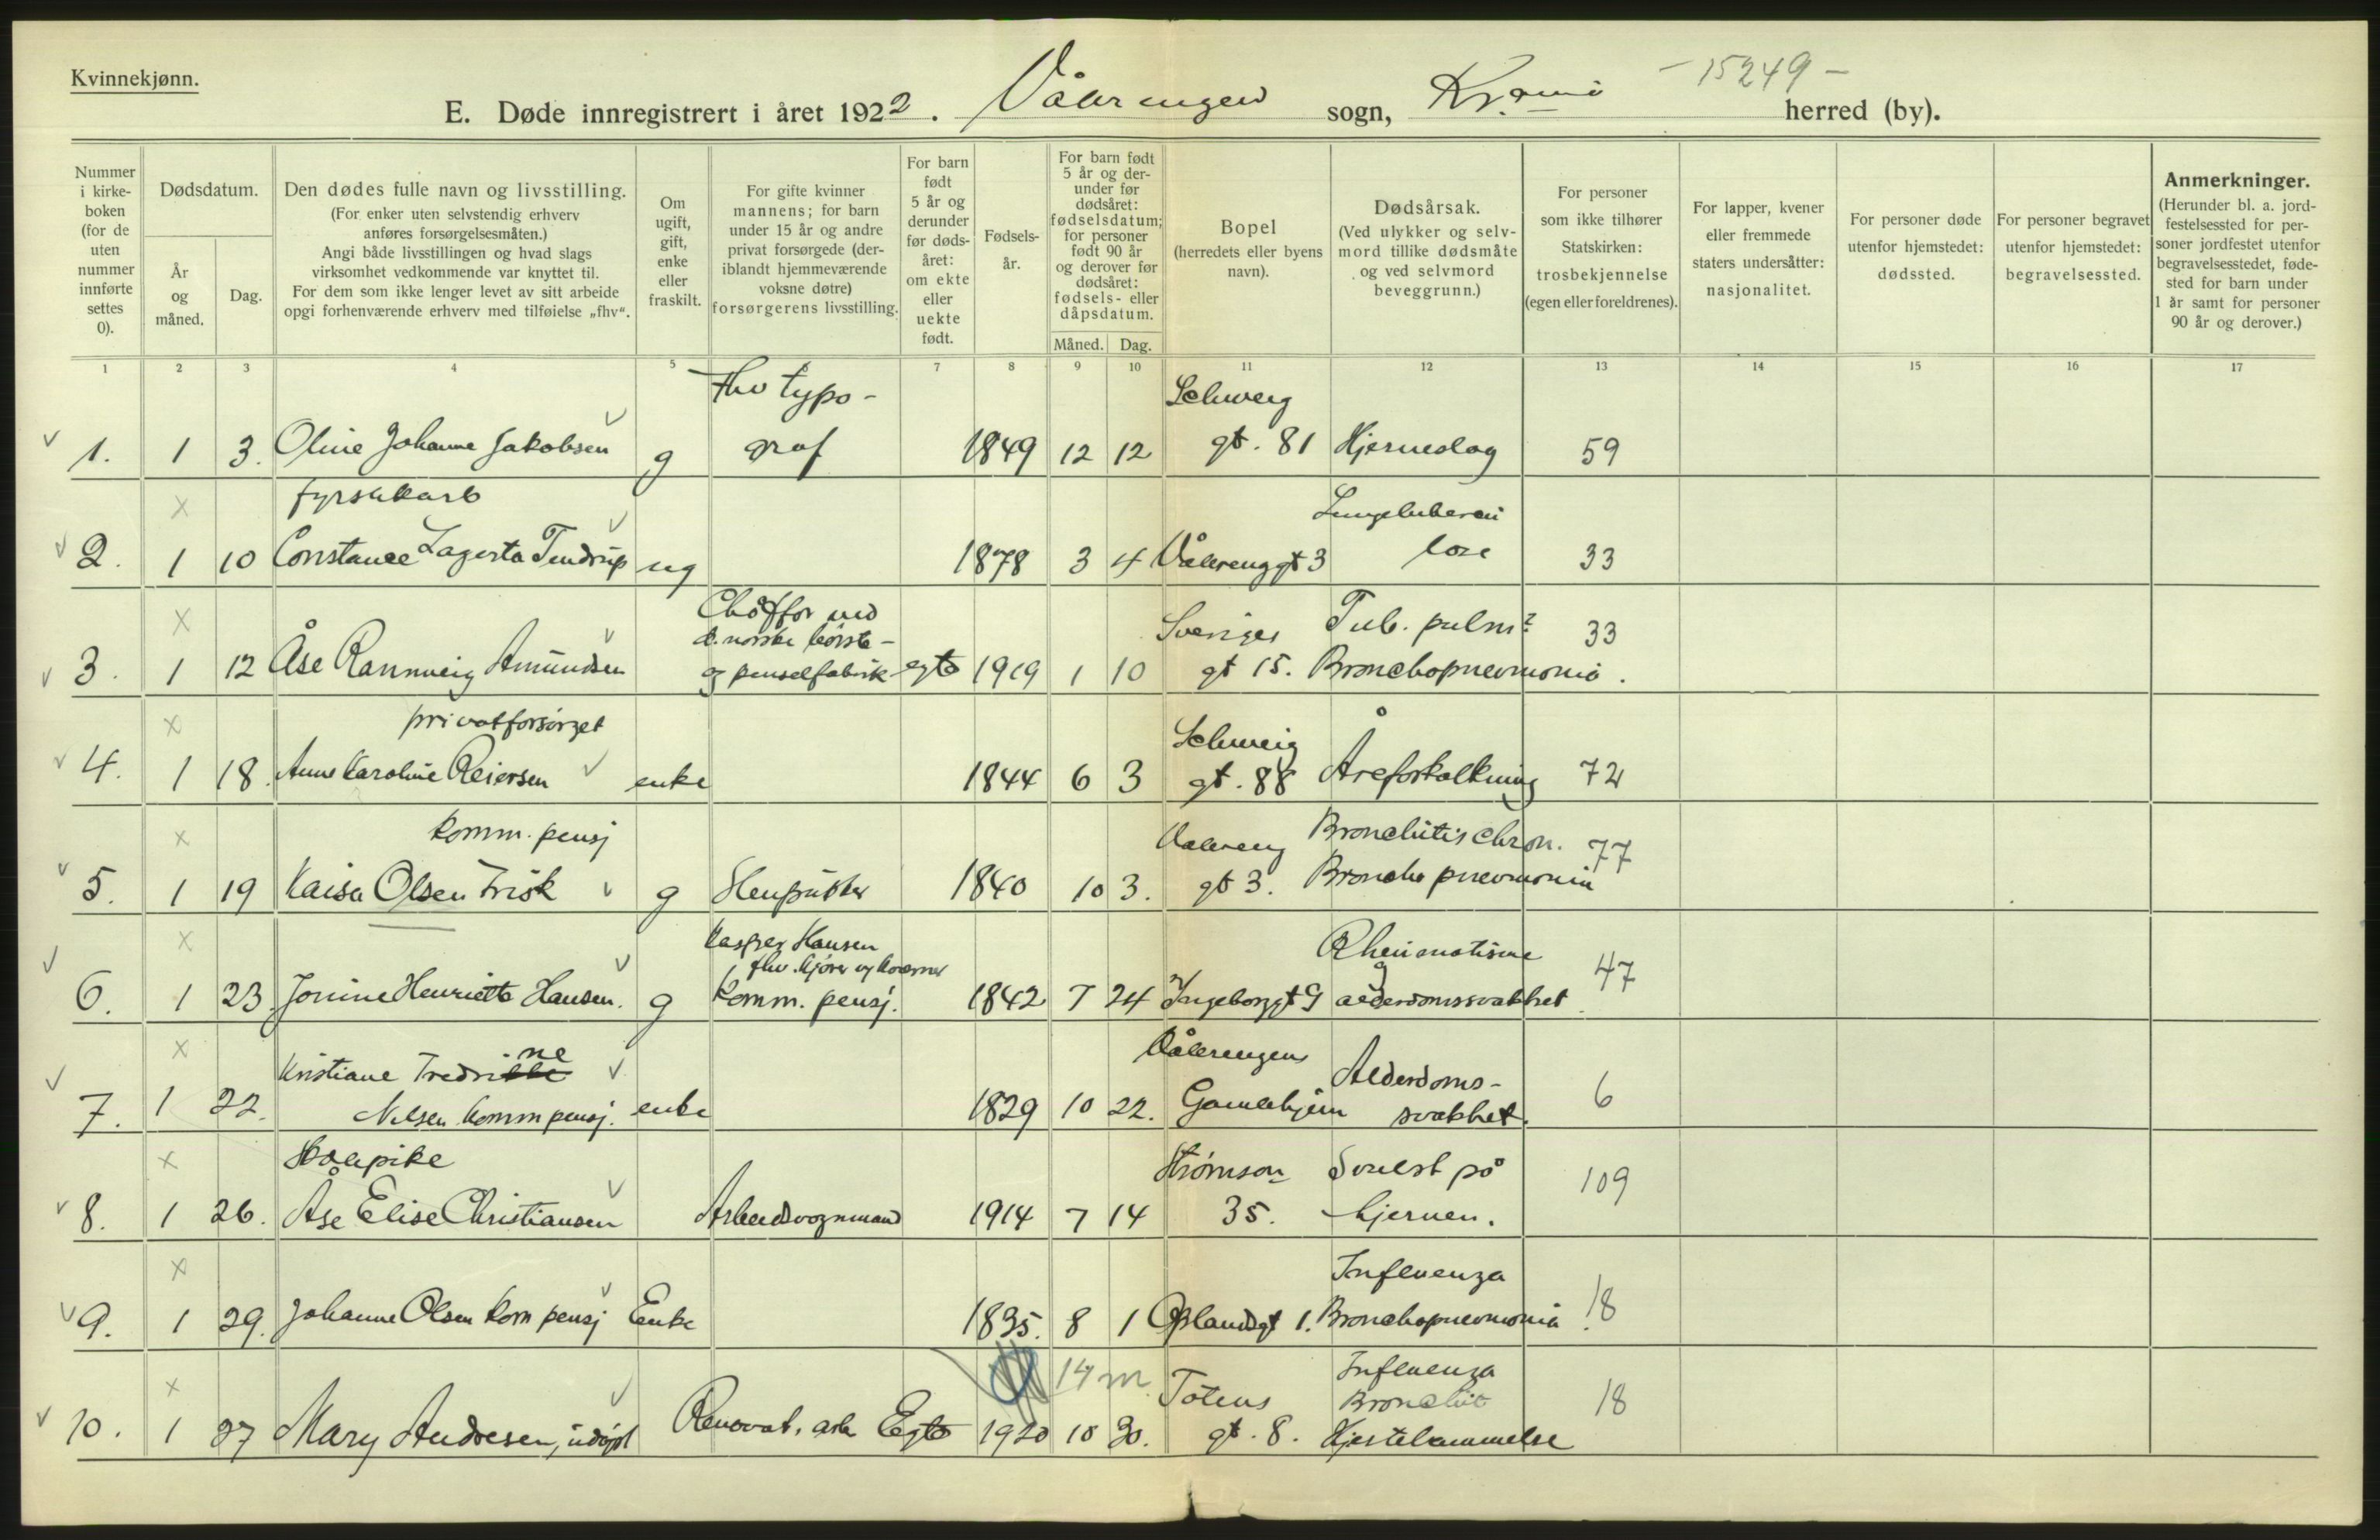 Kvinnekjønn.
- 15249 -
E. Døde innregistrert i året 1922. Vålerengen sogn, Kr.ania herred (by).
Nummer i kirke-boken (for de uten nummer innførte settes 0).
Dødsdatum.
År og måned.
Dag.
Den dødes fulle navn og livsstilling.
(For enker uten selvstendig erhverv anføres forsørgelsesmåten.)
Angi både livsstillingen og hvad slags virksomhet vedkommende var knyttet til.
For dem som ikke lenger levet av sitt arbeide opgi forhenværende erhverv med tilføielse „fhv“.
Om ugift, gift, enke eller fraskilt.
For gifte kvinner mannens; for barn under 15 år og andre privat forsørgede (deriblandt hjemmeværende voksne døtre) forsørgerens livsstilling.
For barn født 5 år og derunder før dødsåret: om ekte eller uekte født.
Fødsels-år.
For barn født 5 år og derunder før dødsåret: fødselsdatum; for personer født 90 år og derover før dødsåret: fødsels- eller dåpsdatum.
Måned.
Dag.
Bopel
(herredets eller byens navn).
Dødsårsak.
(Ved ulykker og selvmord tillike dødsmåte og ved selvmord beveggrunn.)
For personer som ikke tilhører Statskirken: trosbekjennelse (egen eller foreldrenes).
For lapper, kvener eller fremmede staters undersåtter: nasjonalitet.
For personer døde utenfor hjemstedet: dødssted.
For personer begravet utenfor hjemstedet: begravelsessted.
Anmerkninger.
(Herunder bl. a. jordfestelsessted for personer jordfestet utenfor begravelsesstedet, fødested for barn under 1 år samt for personer 90 år og derover.)
1 2 3 4 5 6 7 8 9 10 11 12 13 14 15 16 17
Fhv typo- Schweig
1. 1 3. Oline Johanne Jakobsen g graf 1849 12 12 gt. 81 Hjerneslag 59
2. 1 10 Constance Lagerta Tendrup ug 1878 3 4 Vålerenggt 3 33
Choffør ved
d. norske børste- Sveriges Tub. pulm? 33
3. 1 12 Åse Rannveig Amundsen og penselfabrik egte 1919 1 10 gt 15. Bronchopnevmonia.
privatforsørget Schweig
4. 1 18. Anne Karoline Reiersen enke 1844 6 3 gt. 88 Åreforkalkning 72
komm. pensj Vålereng Bronchitis chron. 77
5. 1 19 Kaisa Olsen Frisk g 1840 10 3. gt 3. Broncho pnevmonia
Kasper Hansen Rheumatisme
fhv. kjører og 47
6. 1 23. Jonine Henriette Hansen. g Komm. pensj. 1842 7 24 Ingeborggt 9 og alderdomssvakhet
Kristiane Fredrikke ne Vålerengens Alderdoms- 6
7. 1 22. Nilsen komm pensj. enke 1829 10 22. Gamlehjem svakhet.
Skolepike Strømsvn Svulst på 109
8. 1 26. Åse Elise Christiansen Arbeidsvognmand 1914 7 14 35. hjernen.
Influenza
9. 1 29. Johanne Olsen kom pensj Enke 1835. 8 1 Oplandsgt 1. Bronchopnevmonia 18
14 m Totens Influenza
Bronchit 18
10. 1 27 Mary Andresen, udøpt Renovat. arb Egte 1920 10 30. gt. 8. Hjertelammelse